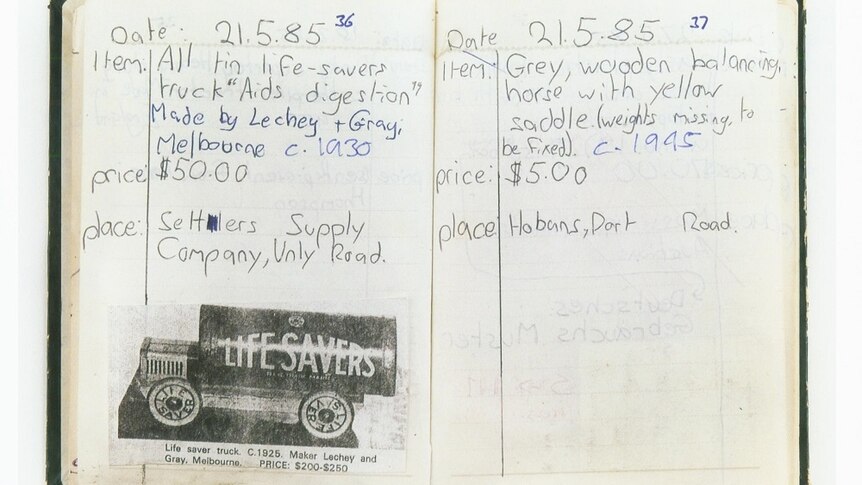 Date: 21.5.85 36
Item: All tin life-savers
truck "Aids digestion"
Made by Lechey + Gray,
Melbourne c. 1930
price: $50.00
place: Settlers Supply
Company, Unly Road.
LIFE SAVERS
Life saver truck. C.1925. Maker Lechey and
Gray, Melbourne. PRICE: $200-$250
Date 21.5.85 37
Item: Grey, wooden balancing,
horse with yellow
saddle. (weights missing, to
be fixed). c. 1995
price: $5.00
place: Hobans, Port Road.
Deutsches
Gebrauchs Muster